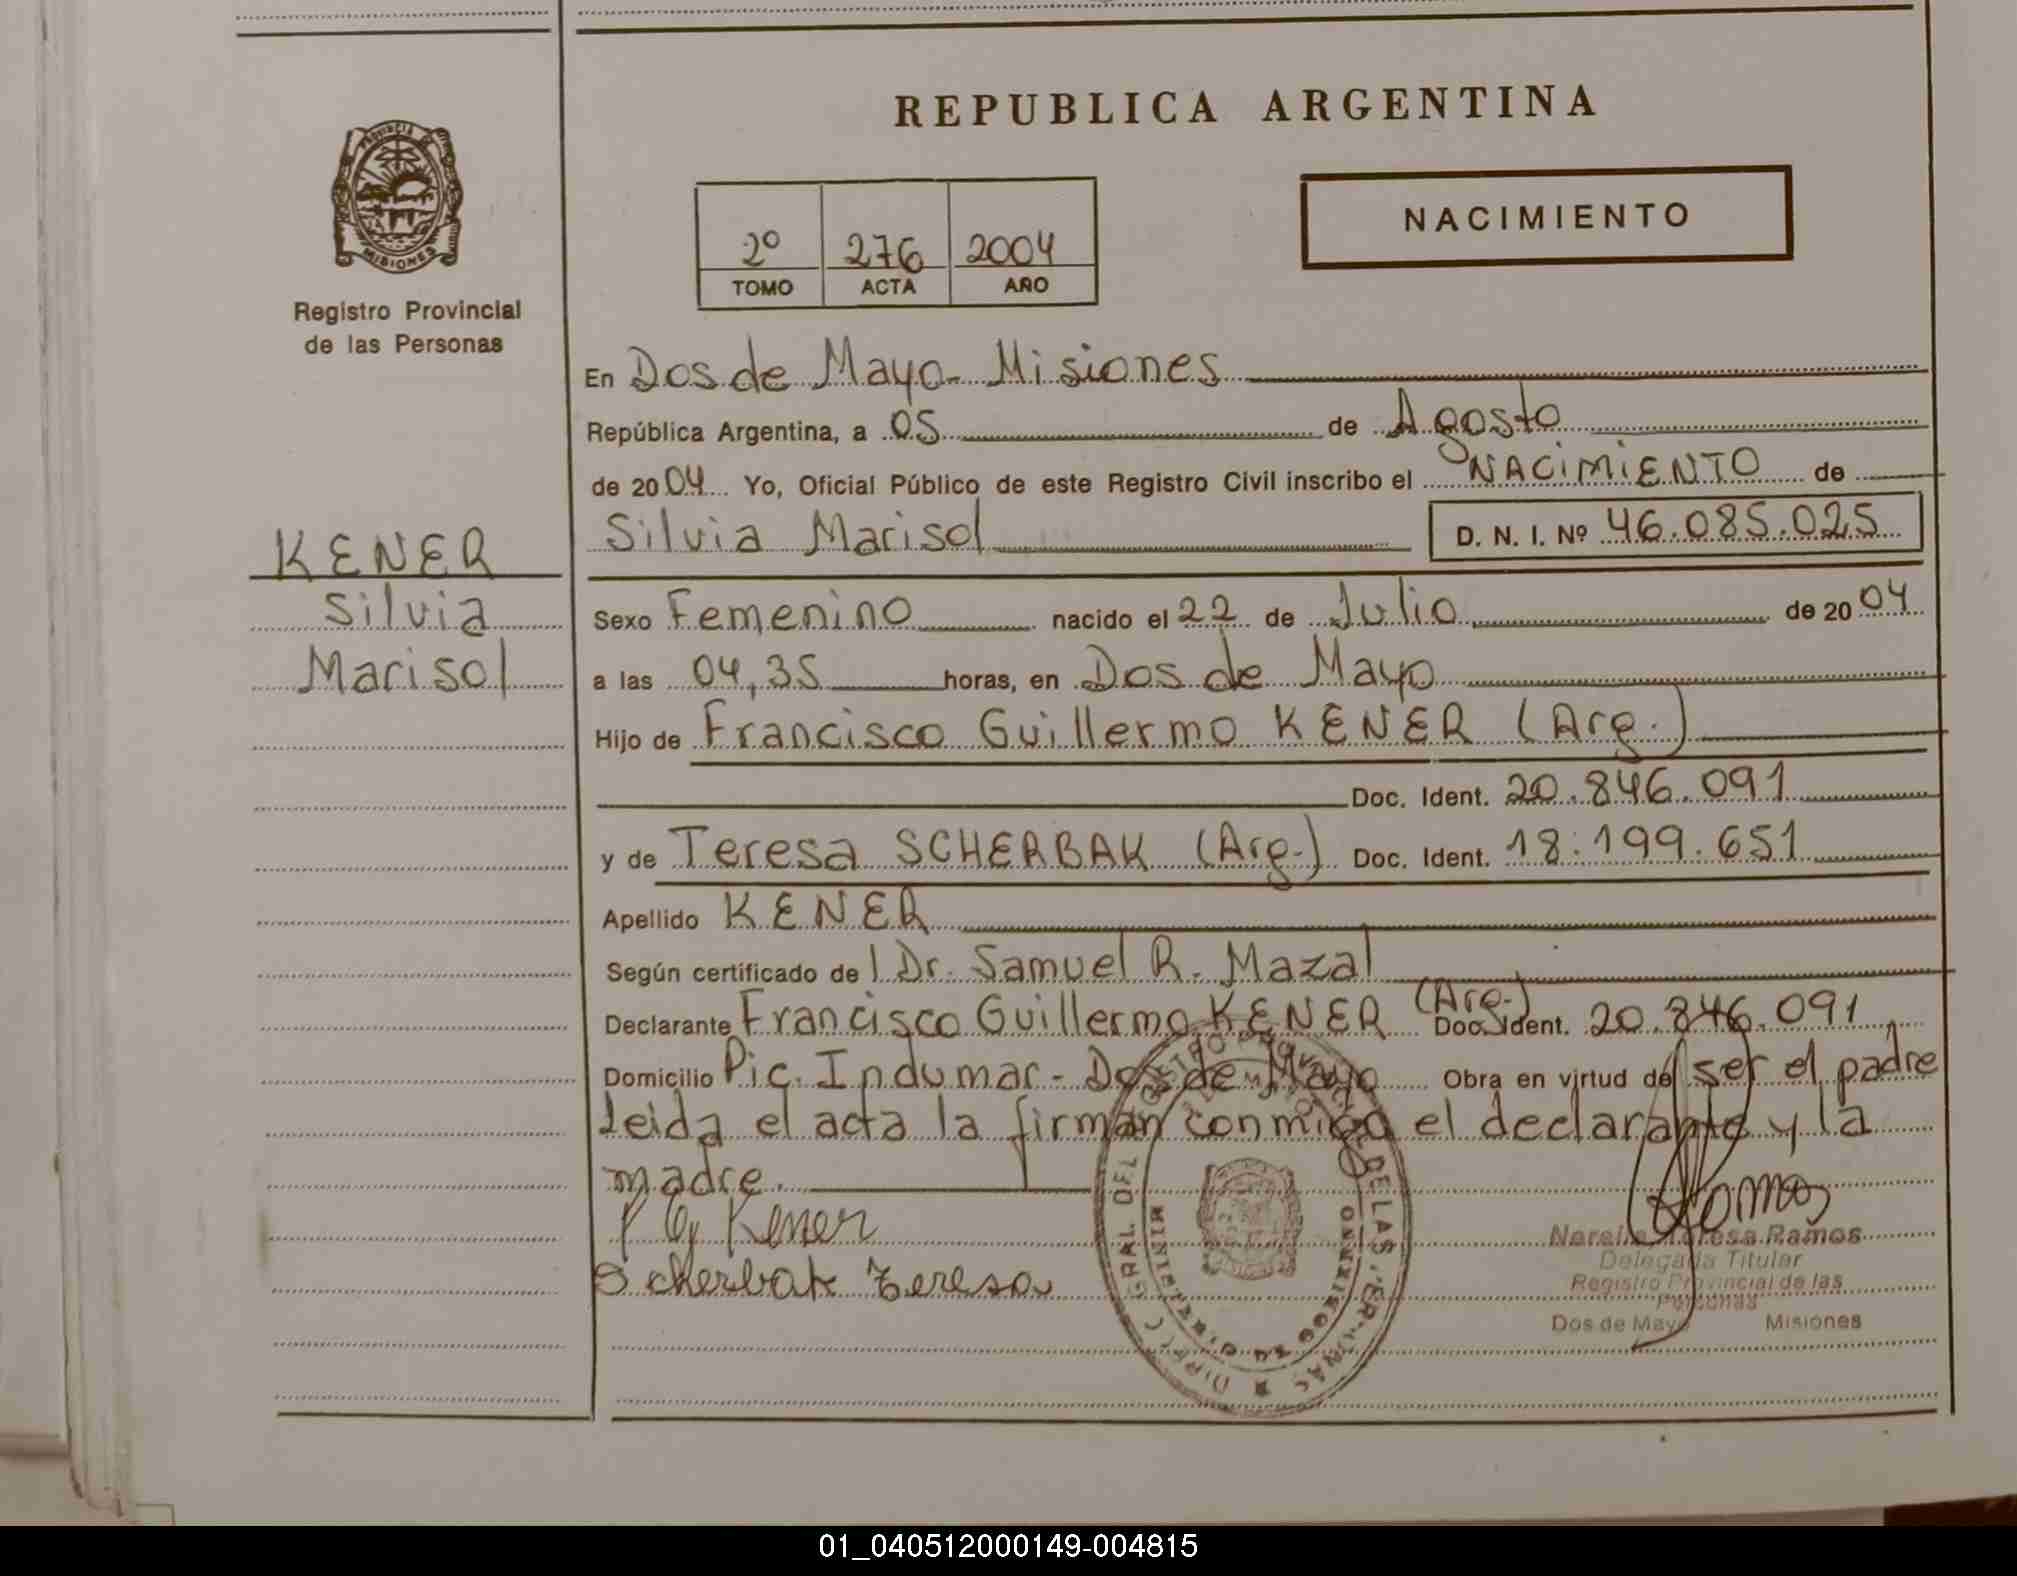 REPUBLICA ARGENTINA
PROVINCIA
MISIONES
Registro Provincial
de las Personas
2º 276 2004
TOMO ACTA AÑO
NACIMIENTO
En Dos de Mayo - Misiones
República Argentina, a 05 de Agosto
de 2004 Yo, Oficial Público de este Registro Civil inscribo el NACIMIENTO de
Silvia Marisol D. N. I. Nº 46.085.025
KENER
Silvia
Marisol
Sexo Femenino nacido el 22 de Julio de 2004
a las 04,35 horas, en Dos de Mayo
Hijo de Francisco Guillermo KENER (Arg.)
Doc. Ident. 20.846.091
y de Teresa SCHERBAK (Arg.) Doc. Ident. 18.199.651
Apellido KENER
Según certificado de l Dr. Samuel R. Mazal
Declarante Francisco Guillermo KENER (Arg.) Doc. Ident. 20.846.091
Domicilio Pic. Indumar - Dos de Mayo Obra en virtud de ser el padre
Leida el acta la firman conmigo el declarante y la
madre.
Kener
Scherbak Teresa
Ramos
Teresa Ramos
Delegada Titular
Registro Provincial de las
Personas
Dos de Mayo Misiones
GRAL DEL
DE LAS PER
MINISTERIO
GOBIERNO
01_040512000149-004815